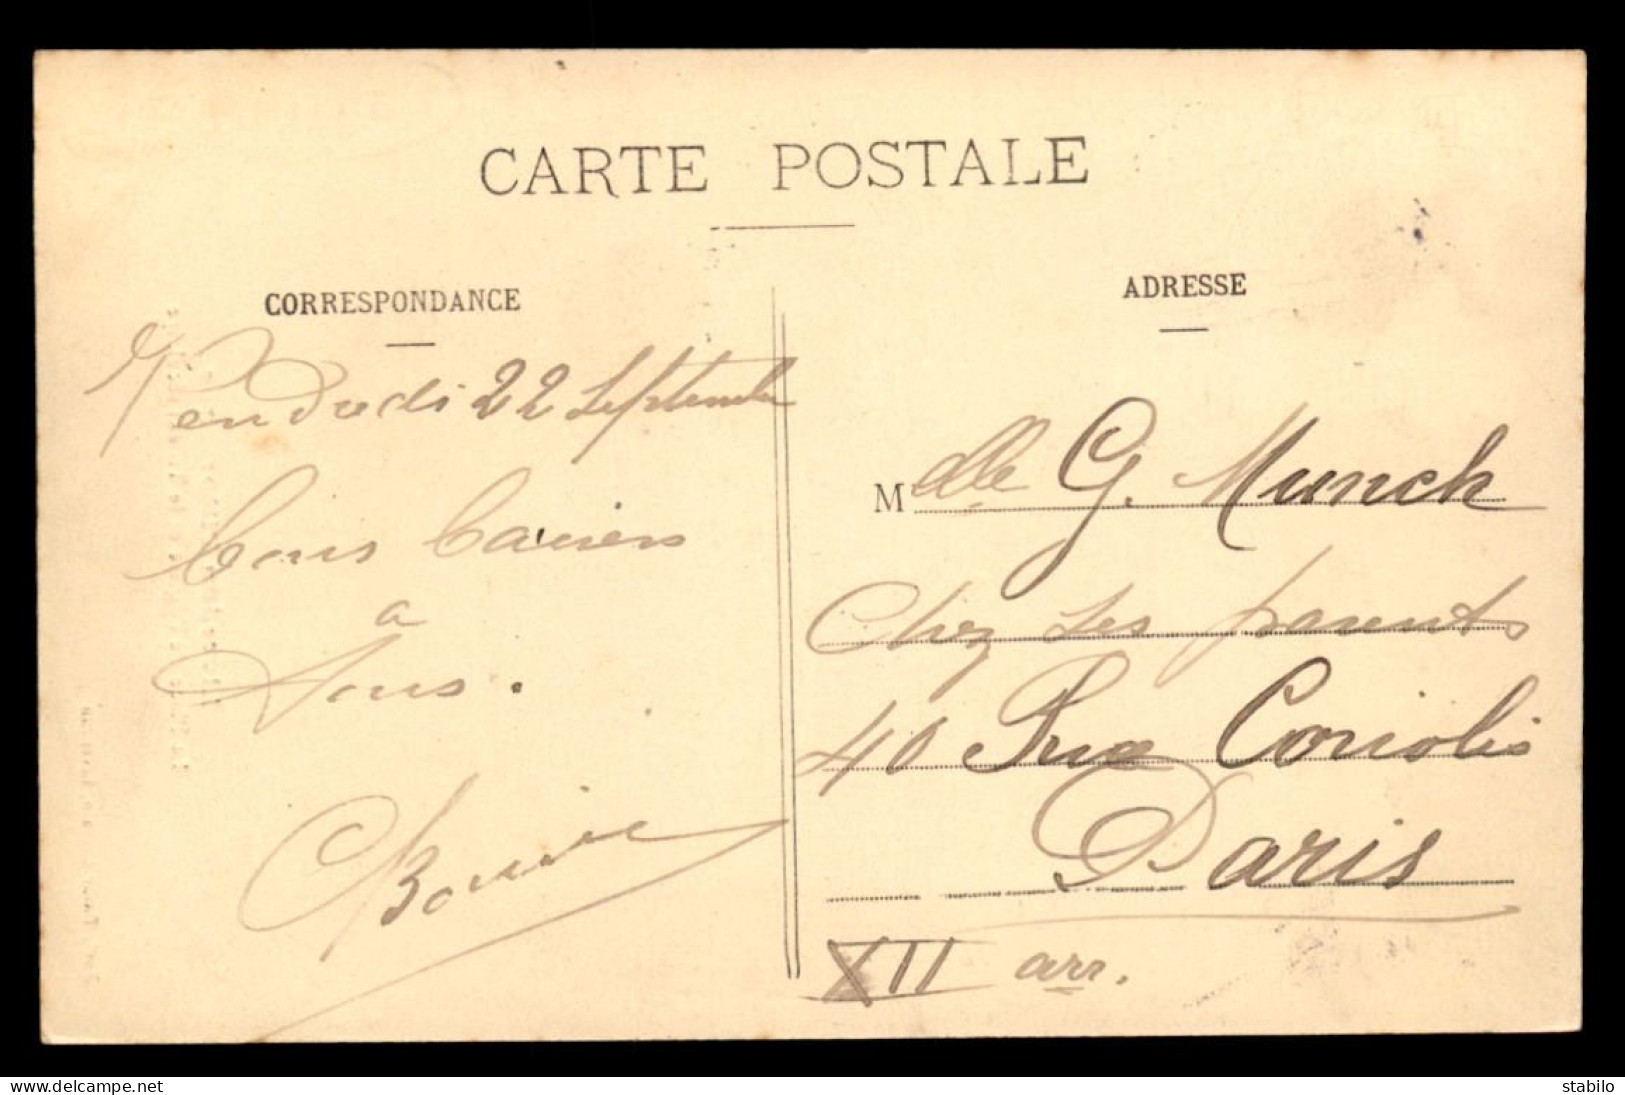 CARTE POSTALE
CORRESPONDANCE
Vendredi 22 Septembre
bons baisers
a
tous.
ADRESSE
Mdlle G. Munch
Chez ses parents
40 Rue Coriolis
Paris
XII arr.
delcampe.net
stabilo